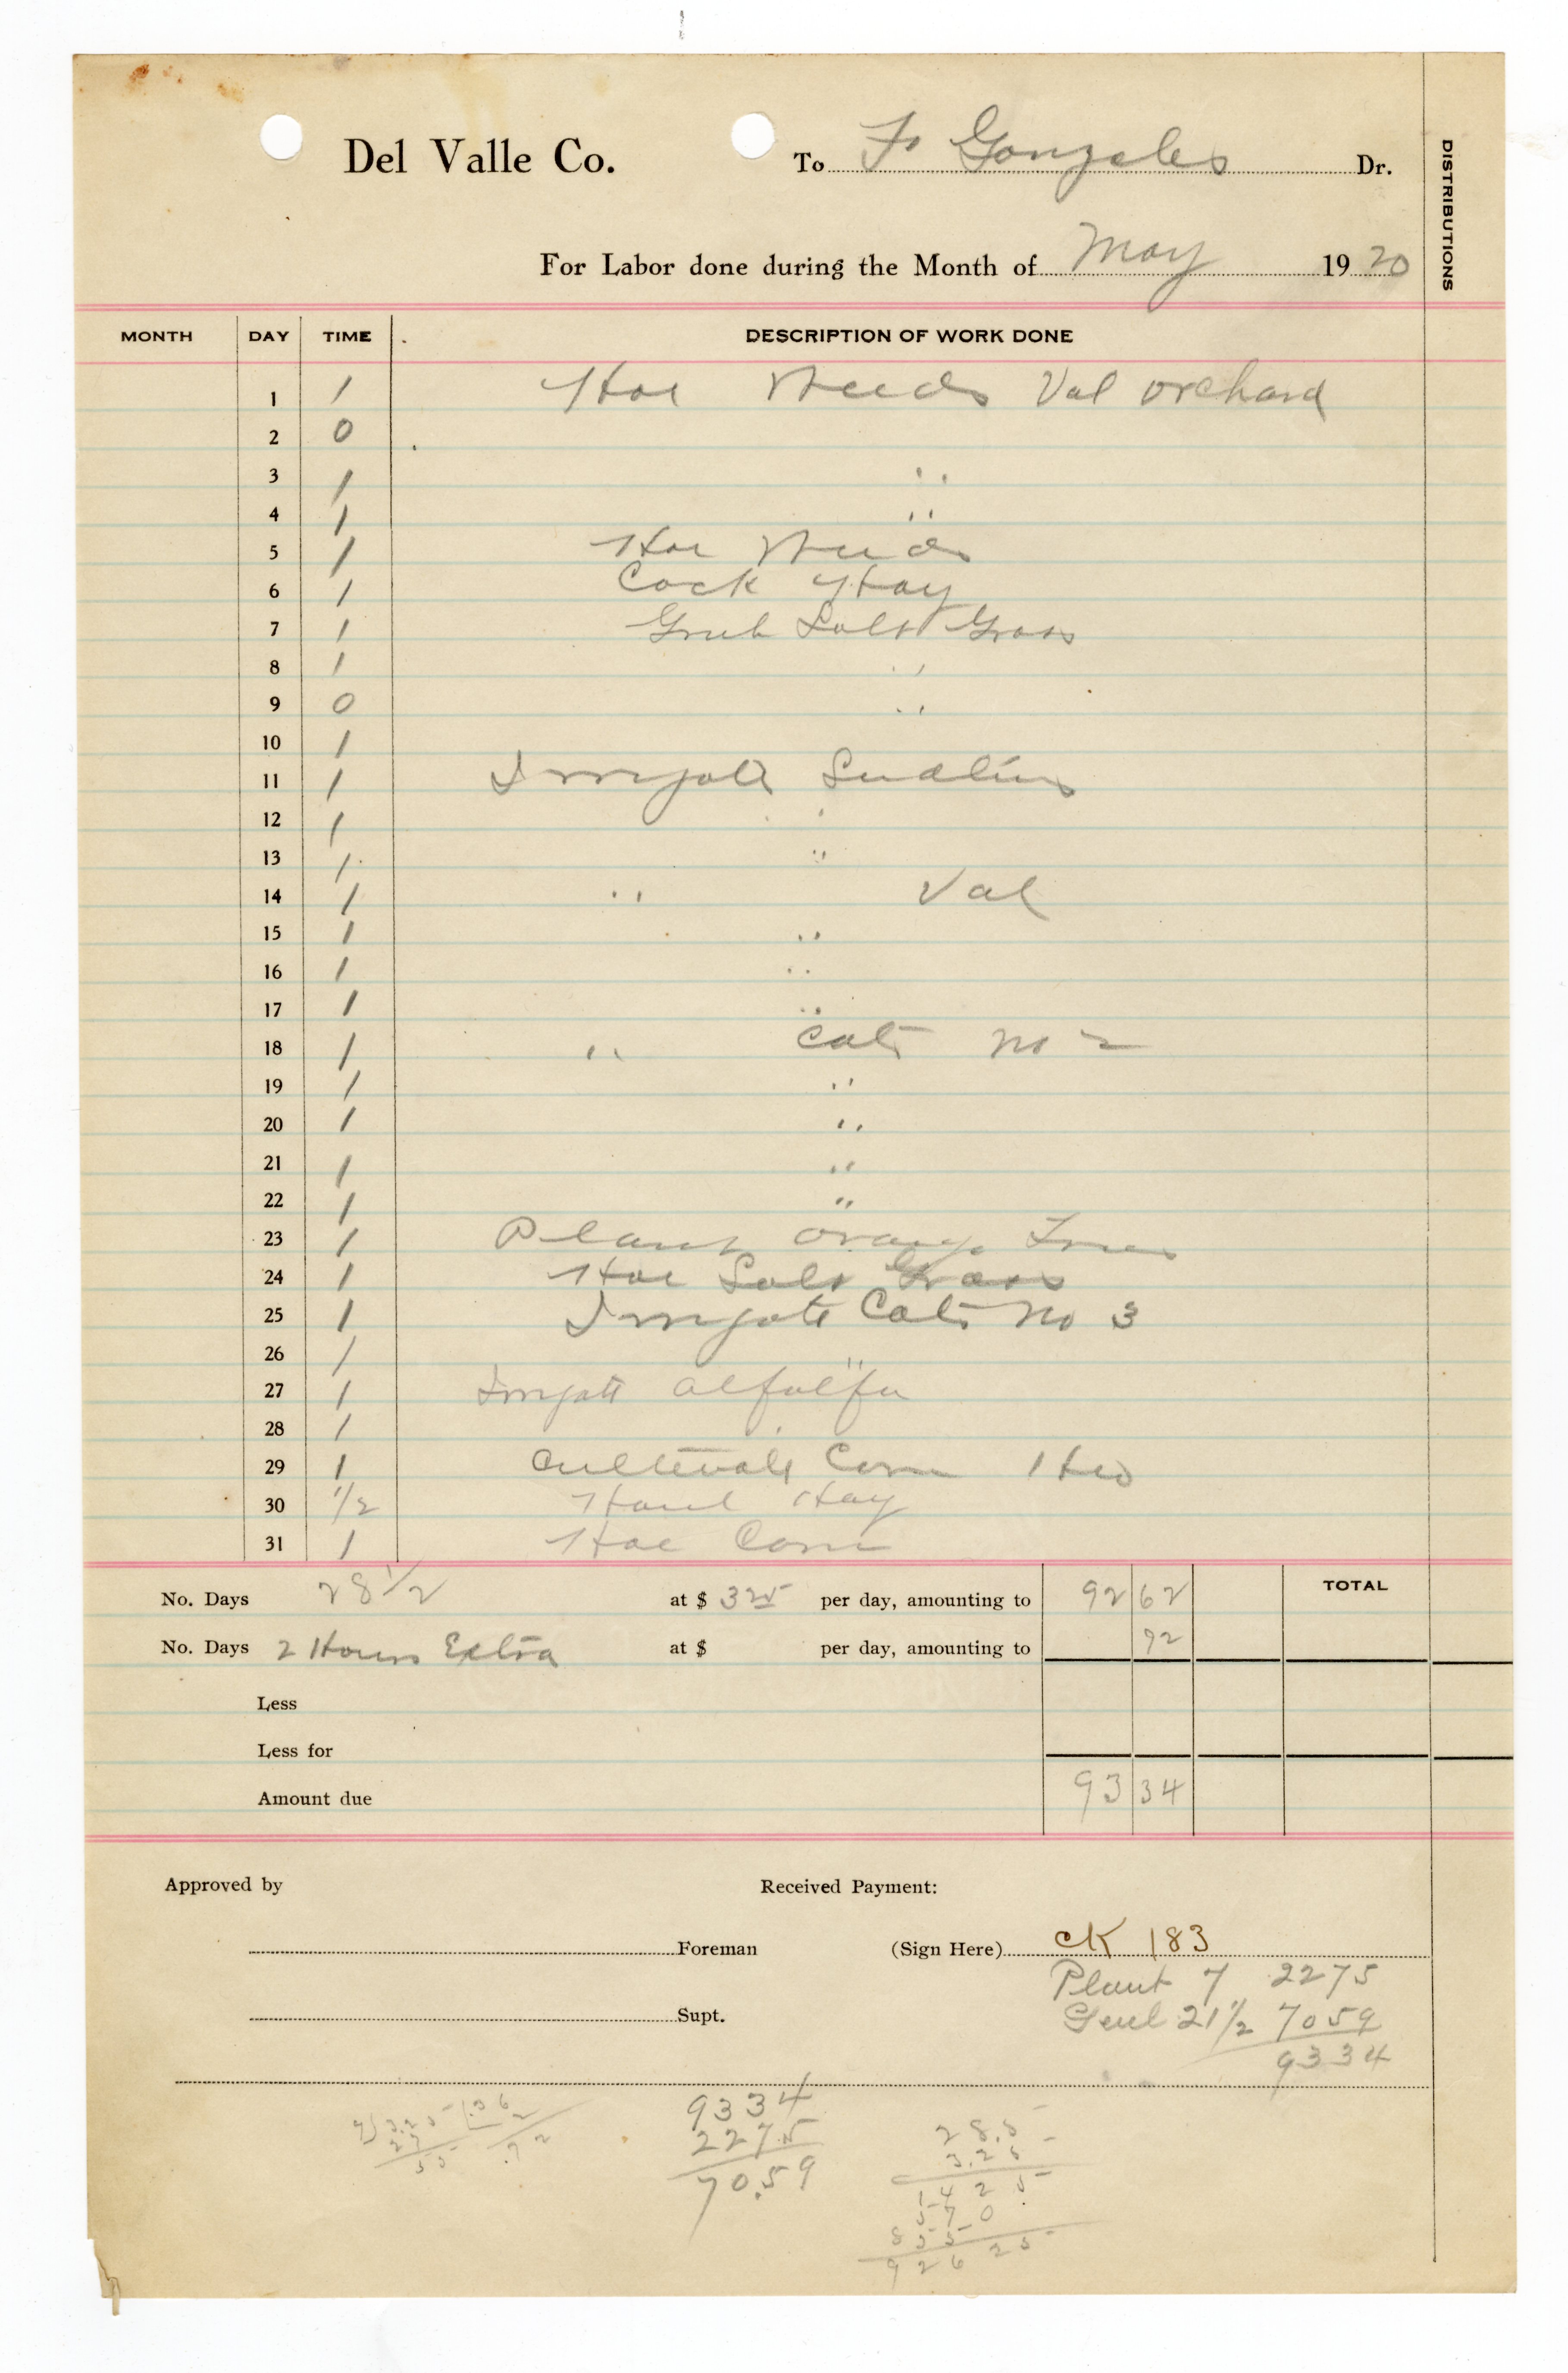 Del Valle Co. To F. Gonzales Dr.
DISTRIBUTIONS
For Labor done during the Month of May 1920
MONTH DAY TIME DESCRIPTION OF WORK DONE
1 1 Hoe Weeds Val orchard
2 0
3 1 "
4 1 "
5 1 Hoe Weeds
6 1 Cock Hay
7 1 Grub Salt Grass
8 1 "
9 0 "
10 1
11 1 Irrigate
12 1 "
13 1 "
14 1 " Val
15 1 "
16 1 "
17 1 "
18 1 " Cats No 2
19 1 "
20 1 "
21 1 "
22 1 "
23 1 Plant Orange Trees
24 1 Hoe Salt Grass
25 1 Irrigate Cats No 3
26 1 "
27 1 Irrigate alfalfa
28 1 "
29 1 Cultivate Corn
30 1/2 Haul Hay
31 1 Hoe Corn
No. Days 28 1/2 at $ 3 25 per day, amounting to 92 62 TOTAL
No. Days 2 Hours Extra at $ per day, amounting to 72
Less
Less for
Amount due 93 34
Approved by Received Payment:
Foreman (Sign Here) CK 183
Plant 7 2275
Supt. Genl 21 1/2 7059
9334
9) 3.25 .36
27 2
55 .72
9334
2275
70.59
28.5
3.25
1425
570
855
92625